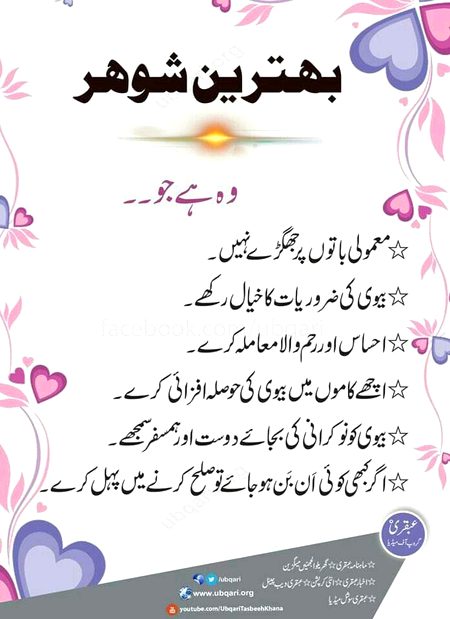 بهترین شوهر
وہ ہے جو۔۔
☆معمولی باتوں پر جھگڑے نہیں۔
☆بیوی کی ضروریات کا خیال رکھے۔
facebook.com/ubqari
☆احساس اور رحم والا معاملہ کرے۔
☆اچھے کاموں میں بیوی کی حوصلہ افزائی کرے۔
☆بیوی کو نوکرانی کی بجائے دوست اور ہمسفر سمجھے۔
☆اگر کبھی کوئی اَن بَن ہو جائے تو صلح کرنے میں پہل کرے۔
عبقری
گروپ آف میڈیا
☆ماہنامہ عبقری☆گھریلو الجھنیں میگزین
☆اخبار عبقری☆اینٹی کرپشن☆عبقری ویب چینل
☆عبقری سوشل میڈیا
/ubqari
www.ubqari.org
youtube.com/UbqariTasbeehKhana